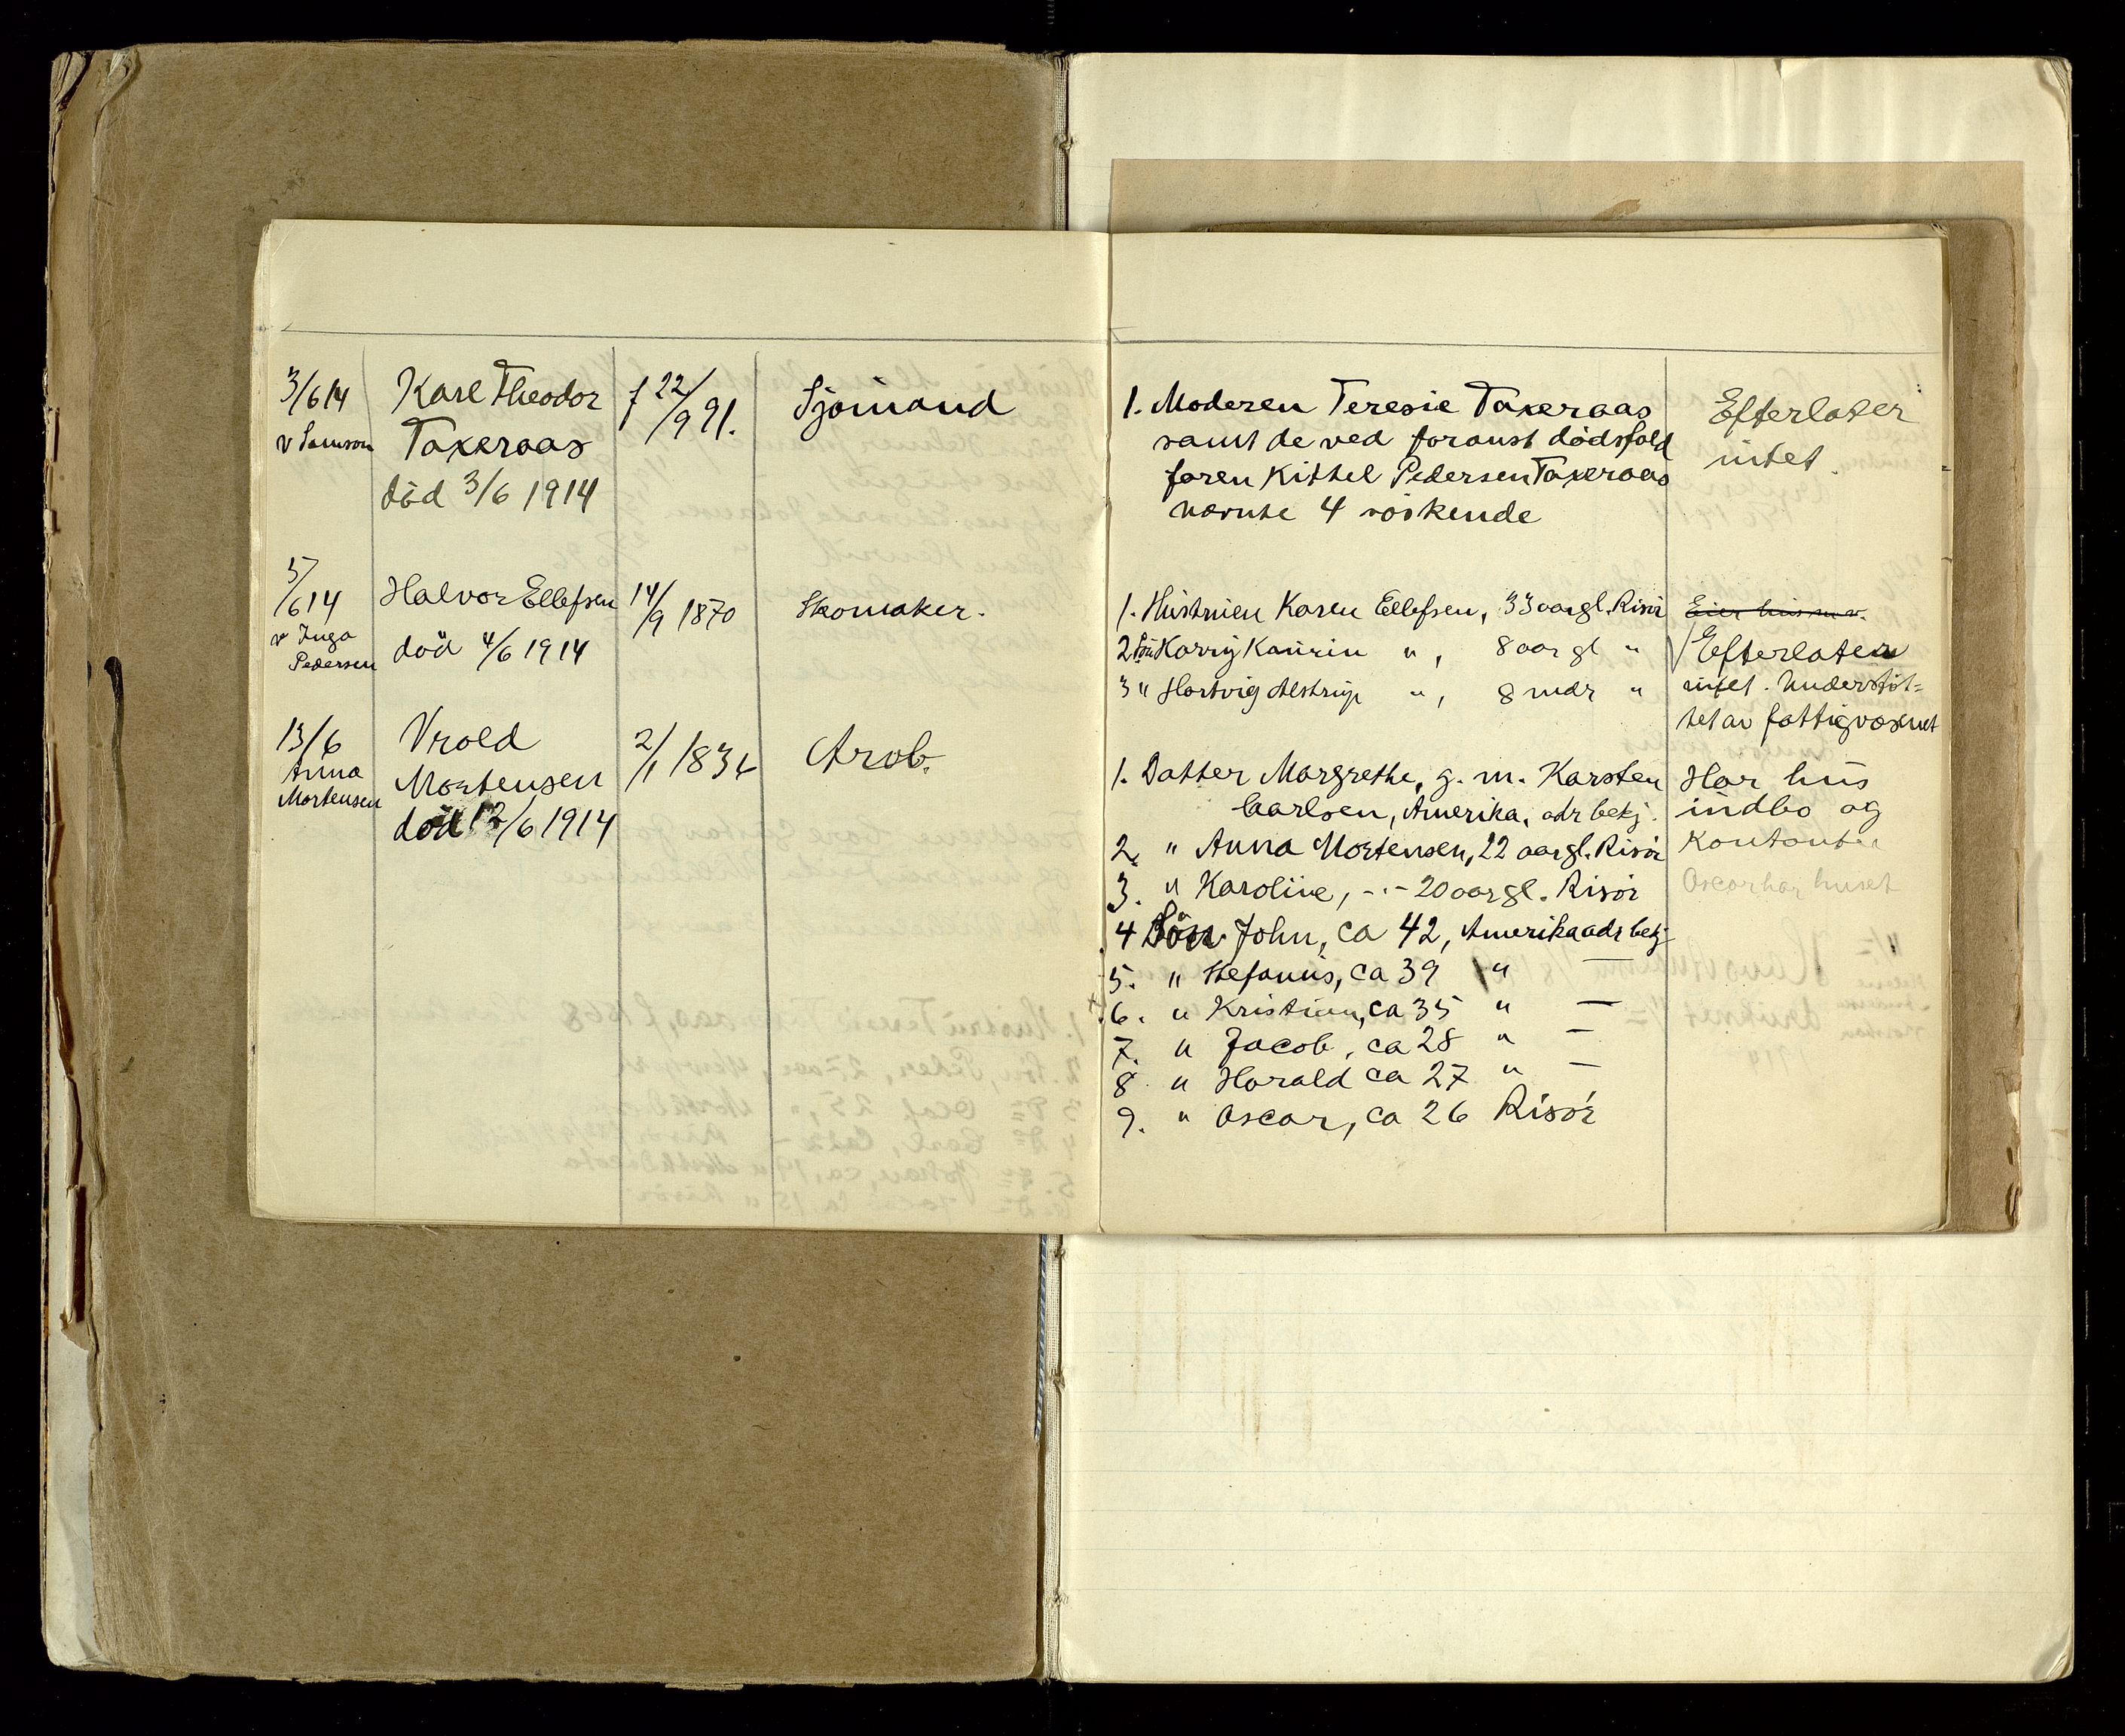 3/6 14
v Samson
Karl Theodor
Takeraas
död 3/6 1914
f 22/9 91.
Sjömand
1. Moderen Teresie Takeraas
samt de ved foranst dödsfald
faren Kittel Pedersen Takeraas
nævnte 4 söskende
Efterlater
intet.
5/6 14
v Inga
Pedersen
Halvor Ellefsen
död 4/6 1914
14/9 1870
Skomaker.
1. Hustruen Karen Ellefsen, 33 aar gl. Risör
2 Sön Harry Kaurin " , 8 aar gl "
3 " Hartvig Alstrup " , 8 mdr "
Efterlater
intet. Understöt-
tet av fattigvæsnet
13/6
Anna
Mortensen
Vrold
Mortensen
död 12/6 1914
2/1 1834
Arob.
1. Datter Margrethe, g. m. Karsten
Carlsen, Amerika, adr bekj.
2. " Anna Mortensen, 22 aar gl. Risör
3. " Karoline, -"- 20 aar gl. Risör
4 Sön John, ca 42, Amerika adr bekj
5. " Stefanus, ca 39 " —
6. " Kristian, ca 35 " —
7. " Jacob, ca 28 " —
8 " Harald ca 27 " —
9. " Oscar, ca 26 Risör
Har hus
indbo og
Kontanter
Oscar har huset